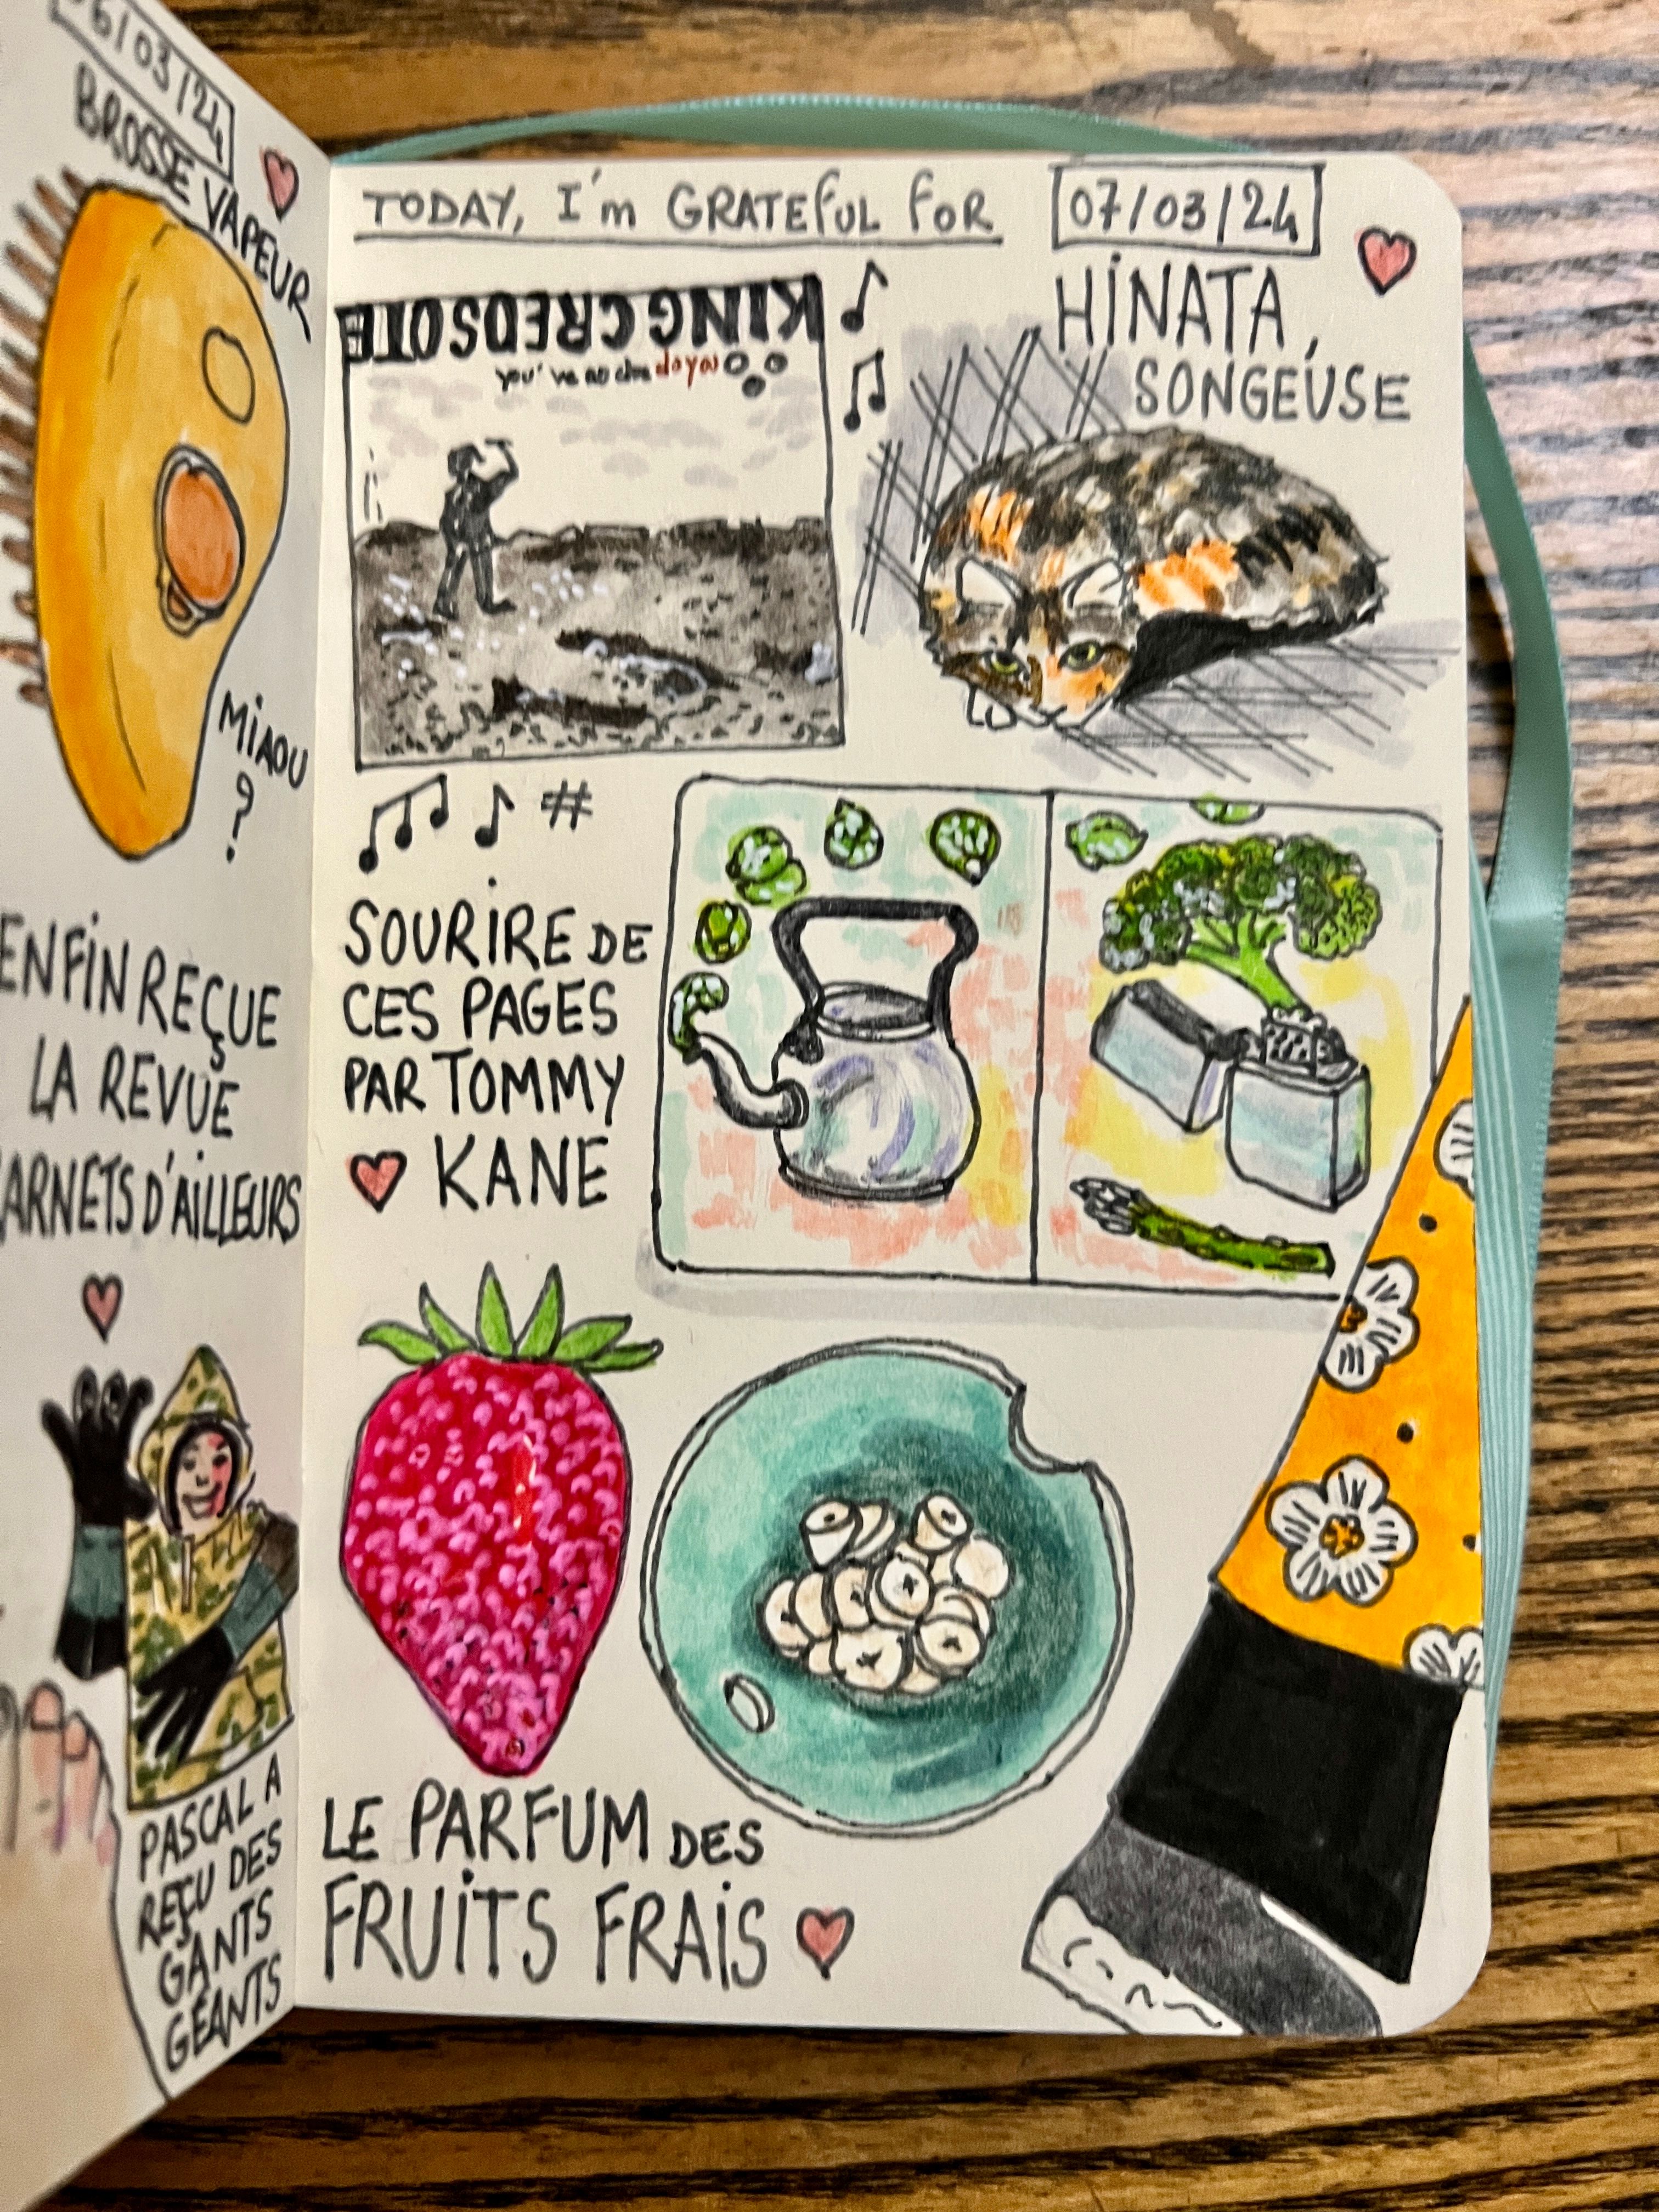 06/03/24
BROSSE VAPEUR
MIAOU
?
ENFIN REÇUE
LA REVUE
CARNETS D'AILLEURS
PASCAL A
REÇU DES
GANTS
GÉANTS
TODAY, I'm GRATEFUL FOR
07/03/24
KING CREOSOTE
do you
HINATA,
SONGEUSE
#
SOURIRE DE
CES PAGES
PAR TOMMY
KANE
LE PARFUM DES
FRUITS FRAIS